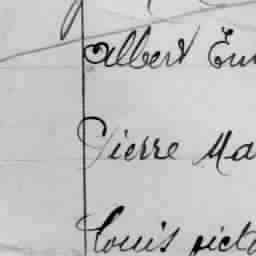 Albert Em
Pierre Ma
Louis picto